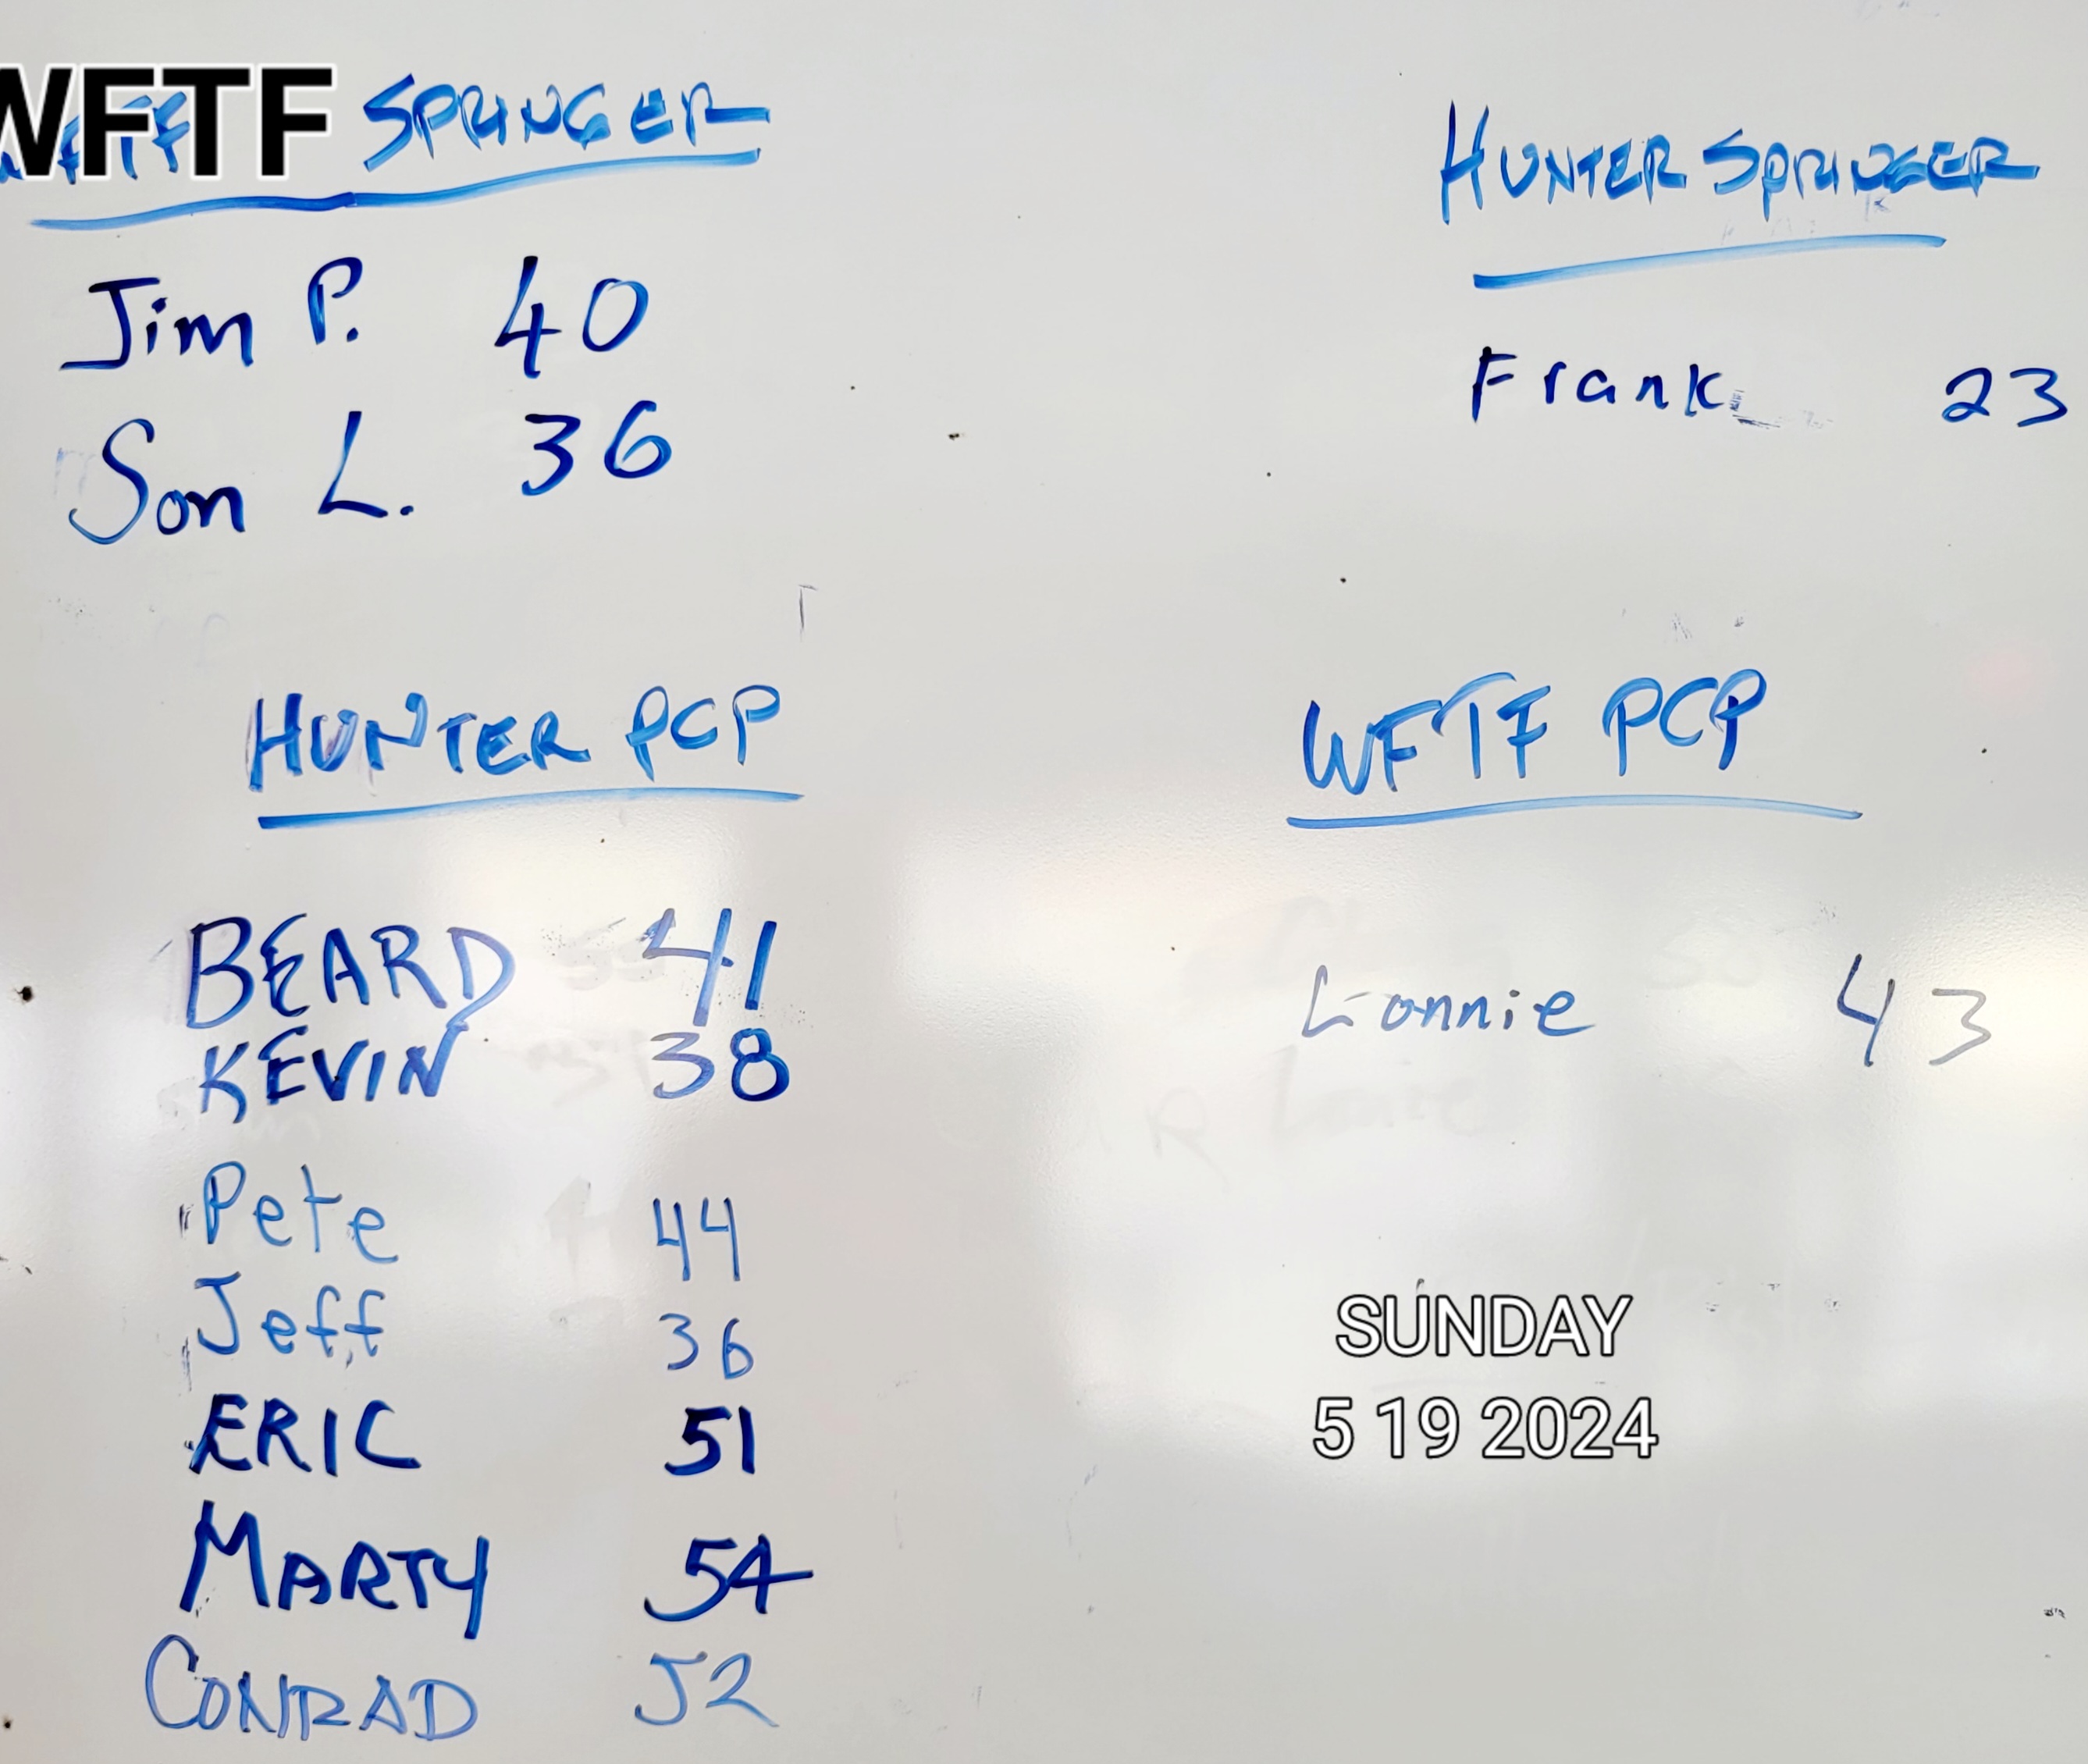 WFTF SPRINGER
Jim P. 40
Son L. 36
HUNTER SPRINGER
Frank 23
HUNTER PCP
BEARD 41
KEVIN 38
Pete 44
Jeff 36
ERIC 51
MARTY 54
CONRAD 52
WFTF PCP
Lonnie 43
SUNDAY
5 19 2024